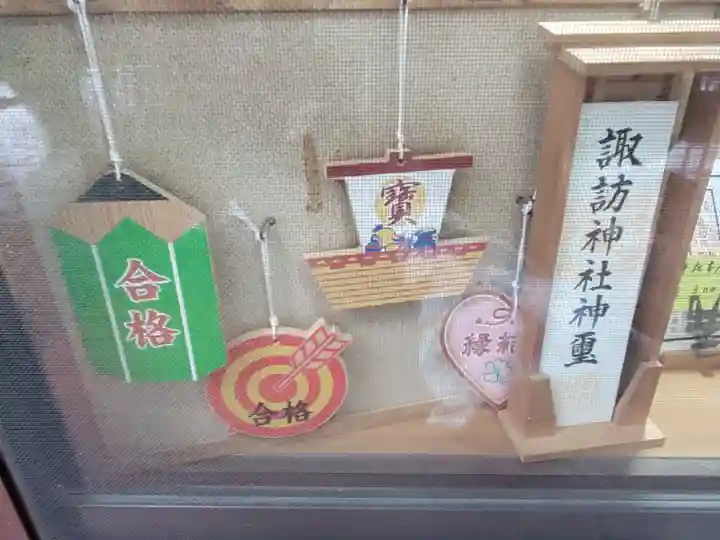 合格
合格
寶
縁結
諏訪神社神璽